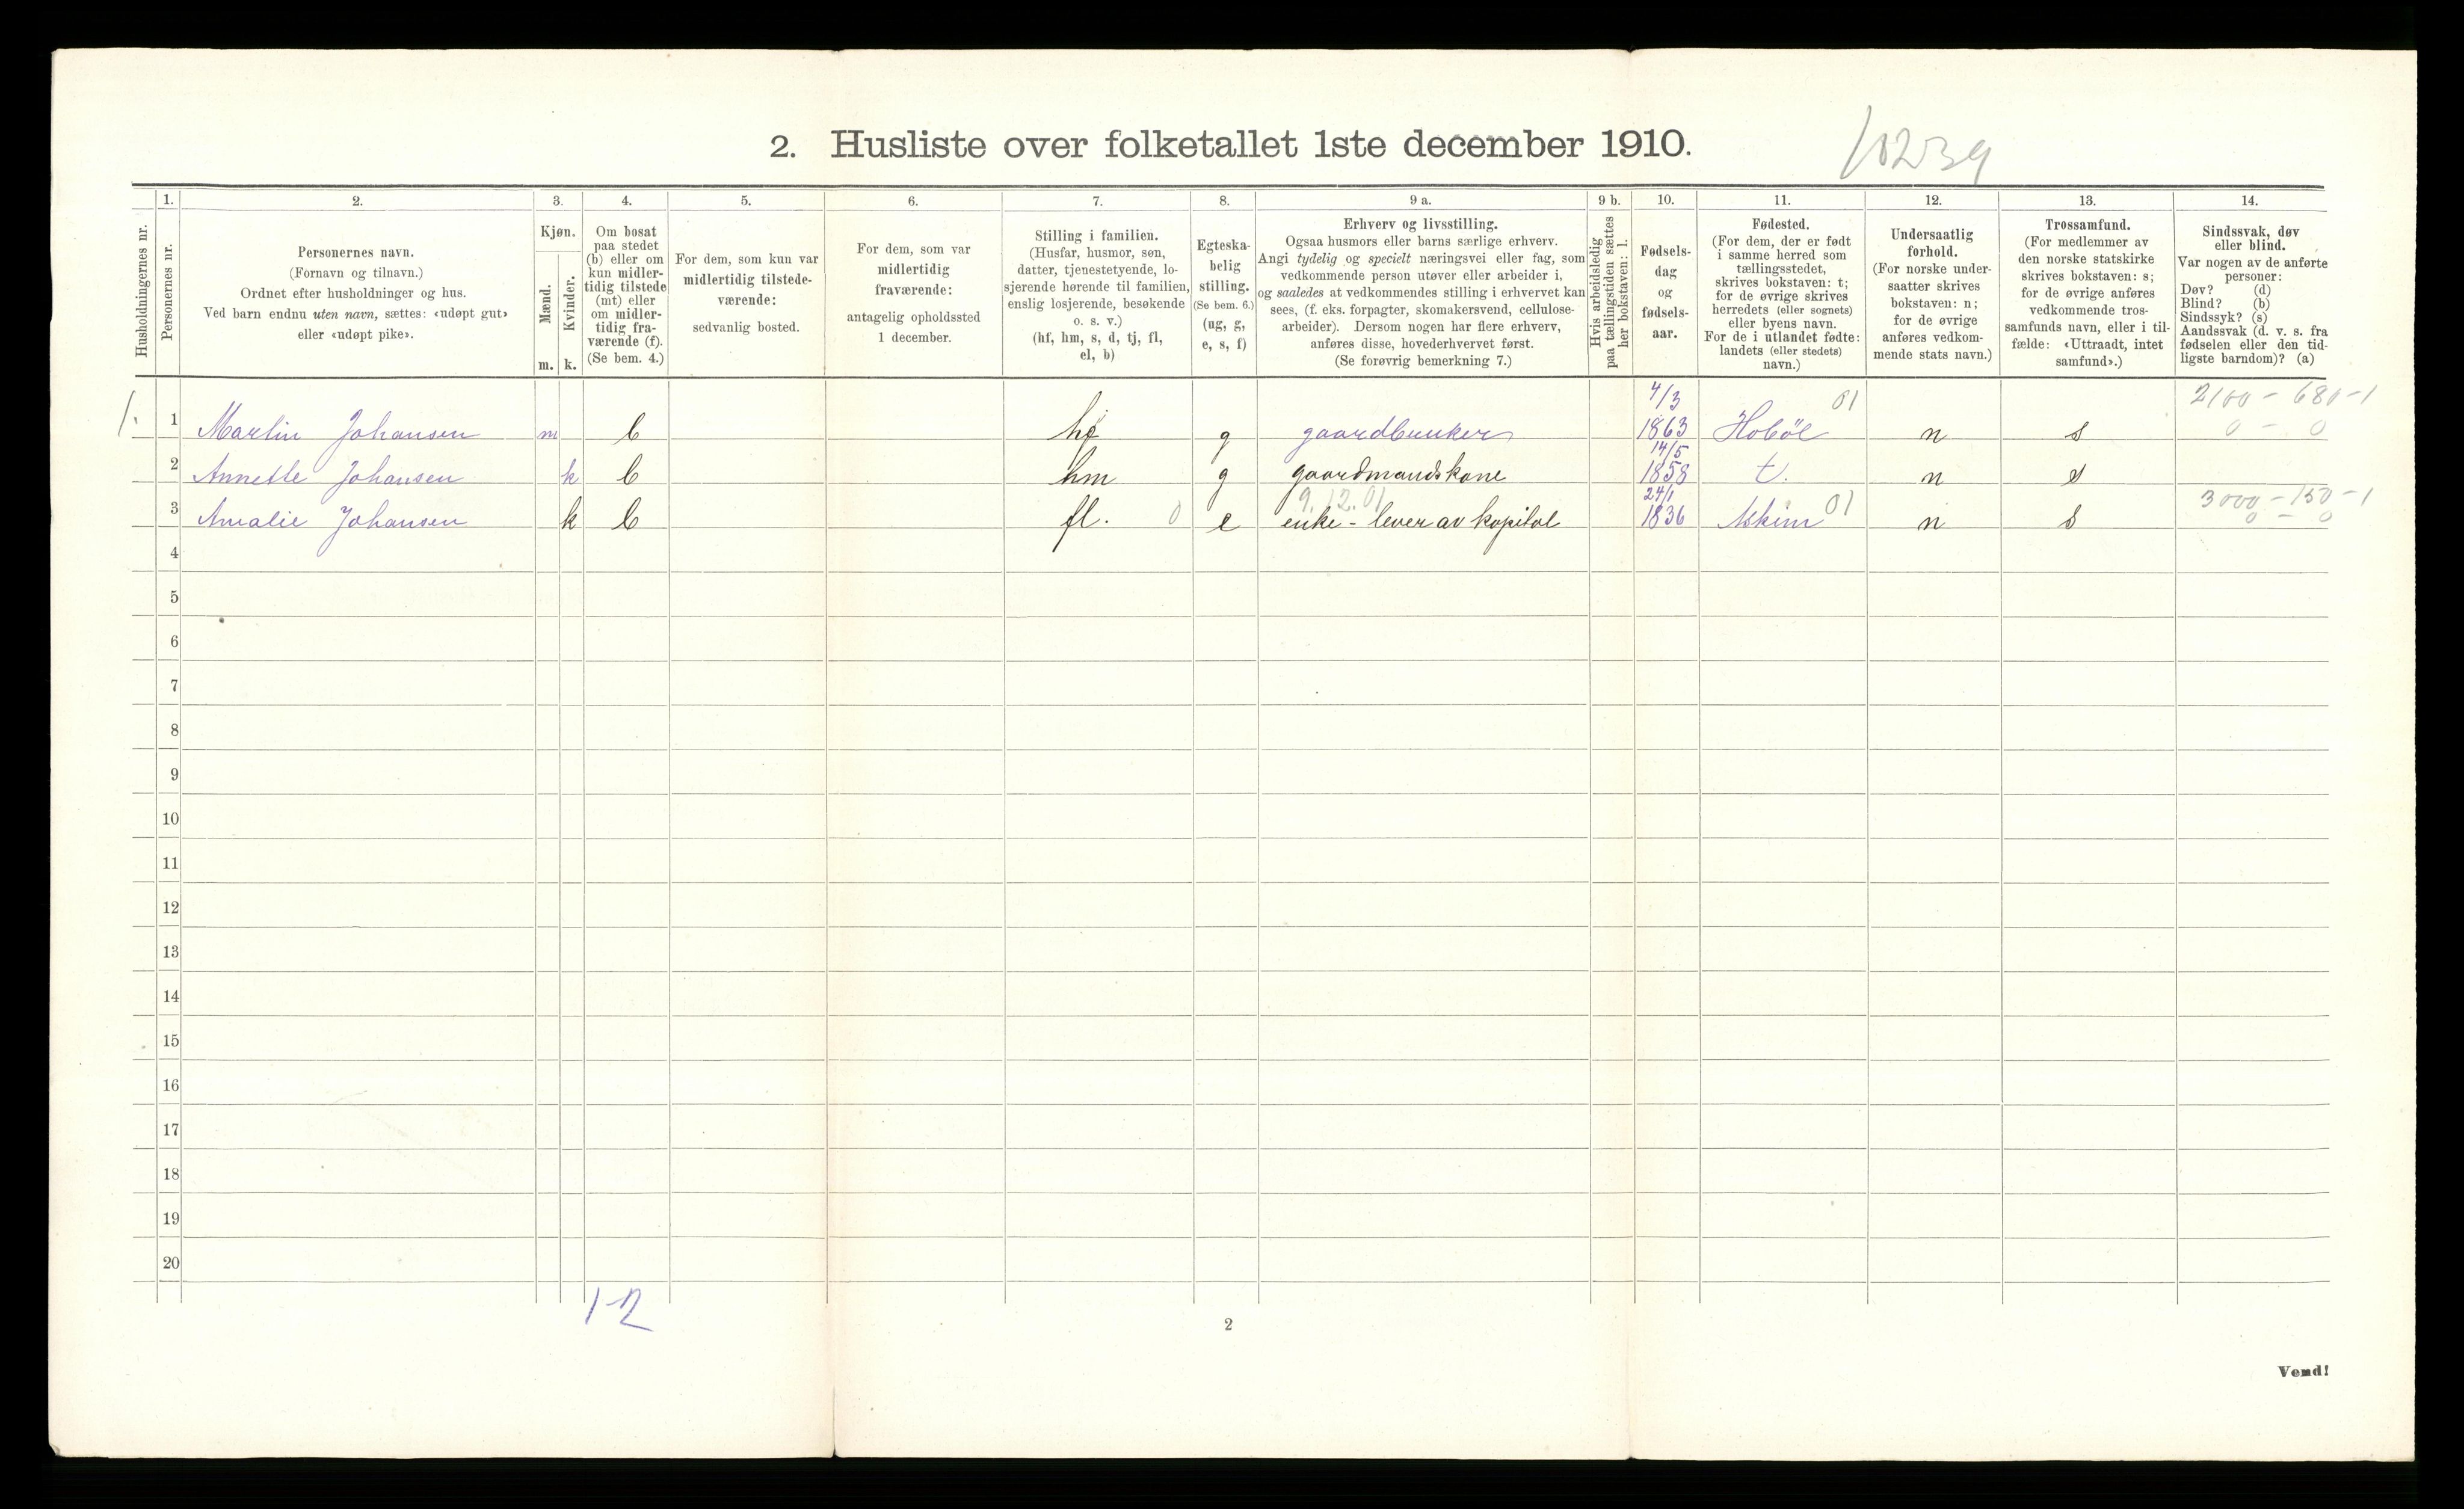 2. Husliste over folketallet 1ste december 1910.
10239
Husholdningernes nr.
1.
Personernes nr.
2.
Personernes navn.
(Fornavn og tilnavn.)
Ordnet efter husholdninger og hus.
Ved barn endnu uten navn, sættes: «udøpt gut»
eller «udøpt pike».
3.
Kjøn.
Mænd.
m.
Kvinder.
k.
4.
Om bosat
paa stedet
(b) eller om
kun midler-
tidig tilstede
(mt) eller
om midler-
tidig fra-
værende (f).
(Se bem. 4.)
5.
For dem, som kun var
midlertidig tilstede-
værende:
sedvanlig bosted.
6.
For dem, som var
midlertidig
fraværende:
antagelig opholdssted
1 december.
7.
Stilling i familien.
(Husfar, husmor, søn,
datter, tjenestetyende, lo-
sjerende hørende til familien,
enslig losjerende, besøkende
o. s. v.)
(hf, hm, s, d, tj, fl,
el, b)
8.
Egteska-
belig
stilling.
(Se bem. 6.)
(ug, g,
e, s, f)
9 a.
Erhverv og livsstilling.
Ogsaa husmors eller barns særlige erhverv.
Angi tydelig og specielt næringsvei eller fag, som
vedkommende person utøver eller arbeider i,
og saaledes at vedkommendes stilling i erhvervet kan
sees, (f. eks. forpagter, skomakersvend, cellulose-
arbeider). Dersom nogen har flere erhverv,
anføres disse, hovederhvervet først.
(Se forøvrig bemerkning 7.)
9 b.
Hvis arbeidsledig
paa tællingstiden sættes
her bokstaven: l.
10.
Fødsels-
dag
og
fødsels-
aar.
11.
Fødested.
(For dem, der er født
i samme herred som
tællingsstedet,
skrives bokstaven: t;
for de øvrige skrives
herredets (eller sognets)
eller byens navn.
For de i utlandet fødte:
landets (eller stedets)
navn.)
12.
Undersaatlig
forhold.
(For norske under-
saatter skrives
bokstaven: n;
for de øvrige
anføres vedkom-
mende stats navn.)
13.
Trossamfund.
(For medlemmer av
den norske statskirke
skrives bokstaven: s;
for de øvrige anføres
vedkommende tros-
samfunds navn, eller i til-
fælde: «Uttraadt, intet
samfund».)
14.
Sindssvak, døv
eller blind.
Var nogen av de anførte
personer:
Døv? (d)
Blind? (b)
Sindssyk? (s)
Aandssvak (d. v. s. fra
fødselen eller den tid-
ligste barndom)? (a)
4/3 01 2100 - 680 - 1
1. 1 Martin Johansen m b hf g gaardbruker 1863 Hobøl n s 0 - 0
14/5
2 Annette Johansen k b hm g gaardmandskone 1858 t. n s
9.12.01 24/1 01 3000 - 150 - 1
3 Amalie Johansen k b fl. 0 e enke - lever av kapital 1836 Askim n s 0 - 0
4
5
6
7
8
9
10
11
12
13
14
15
16
17
18
19
20
1-2
2
Vend!